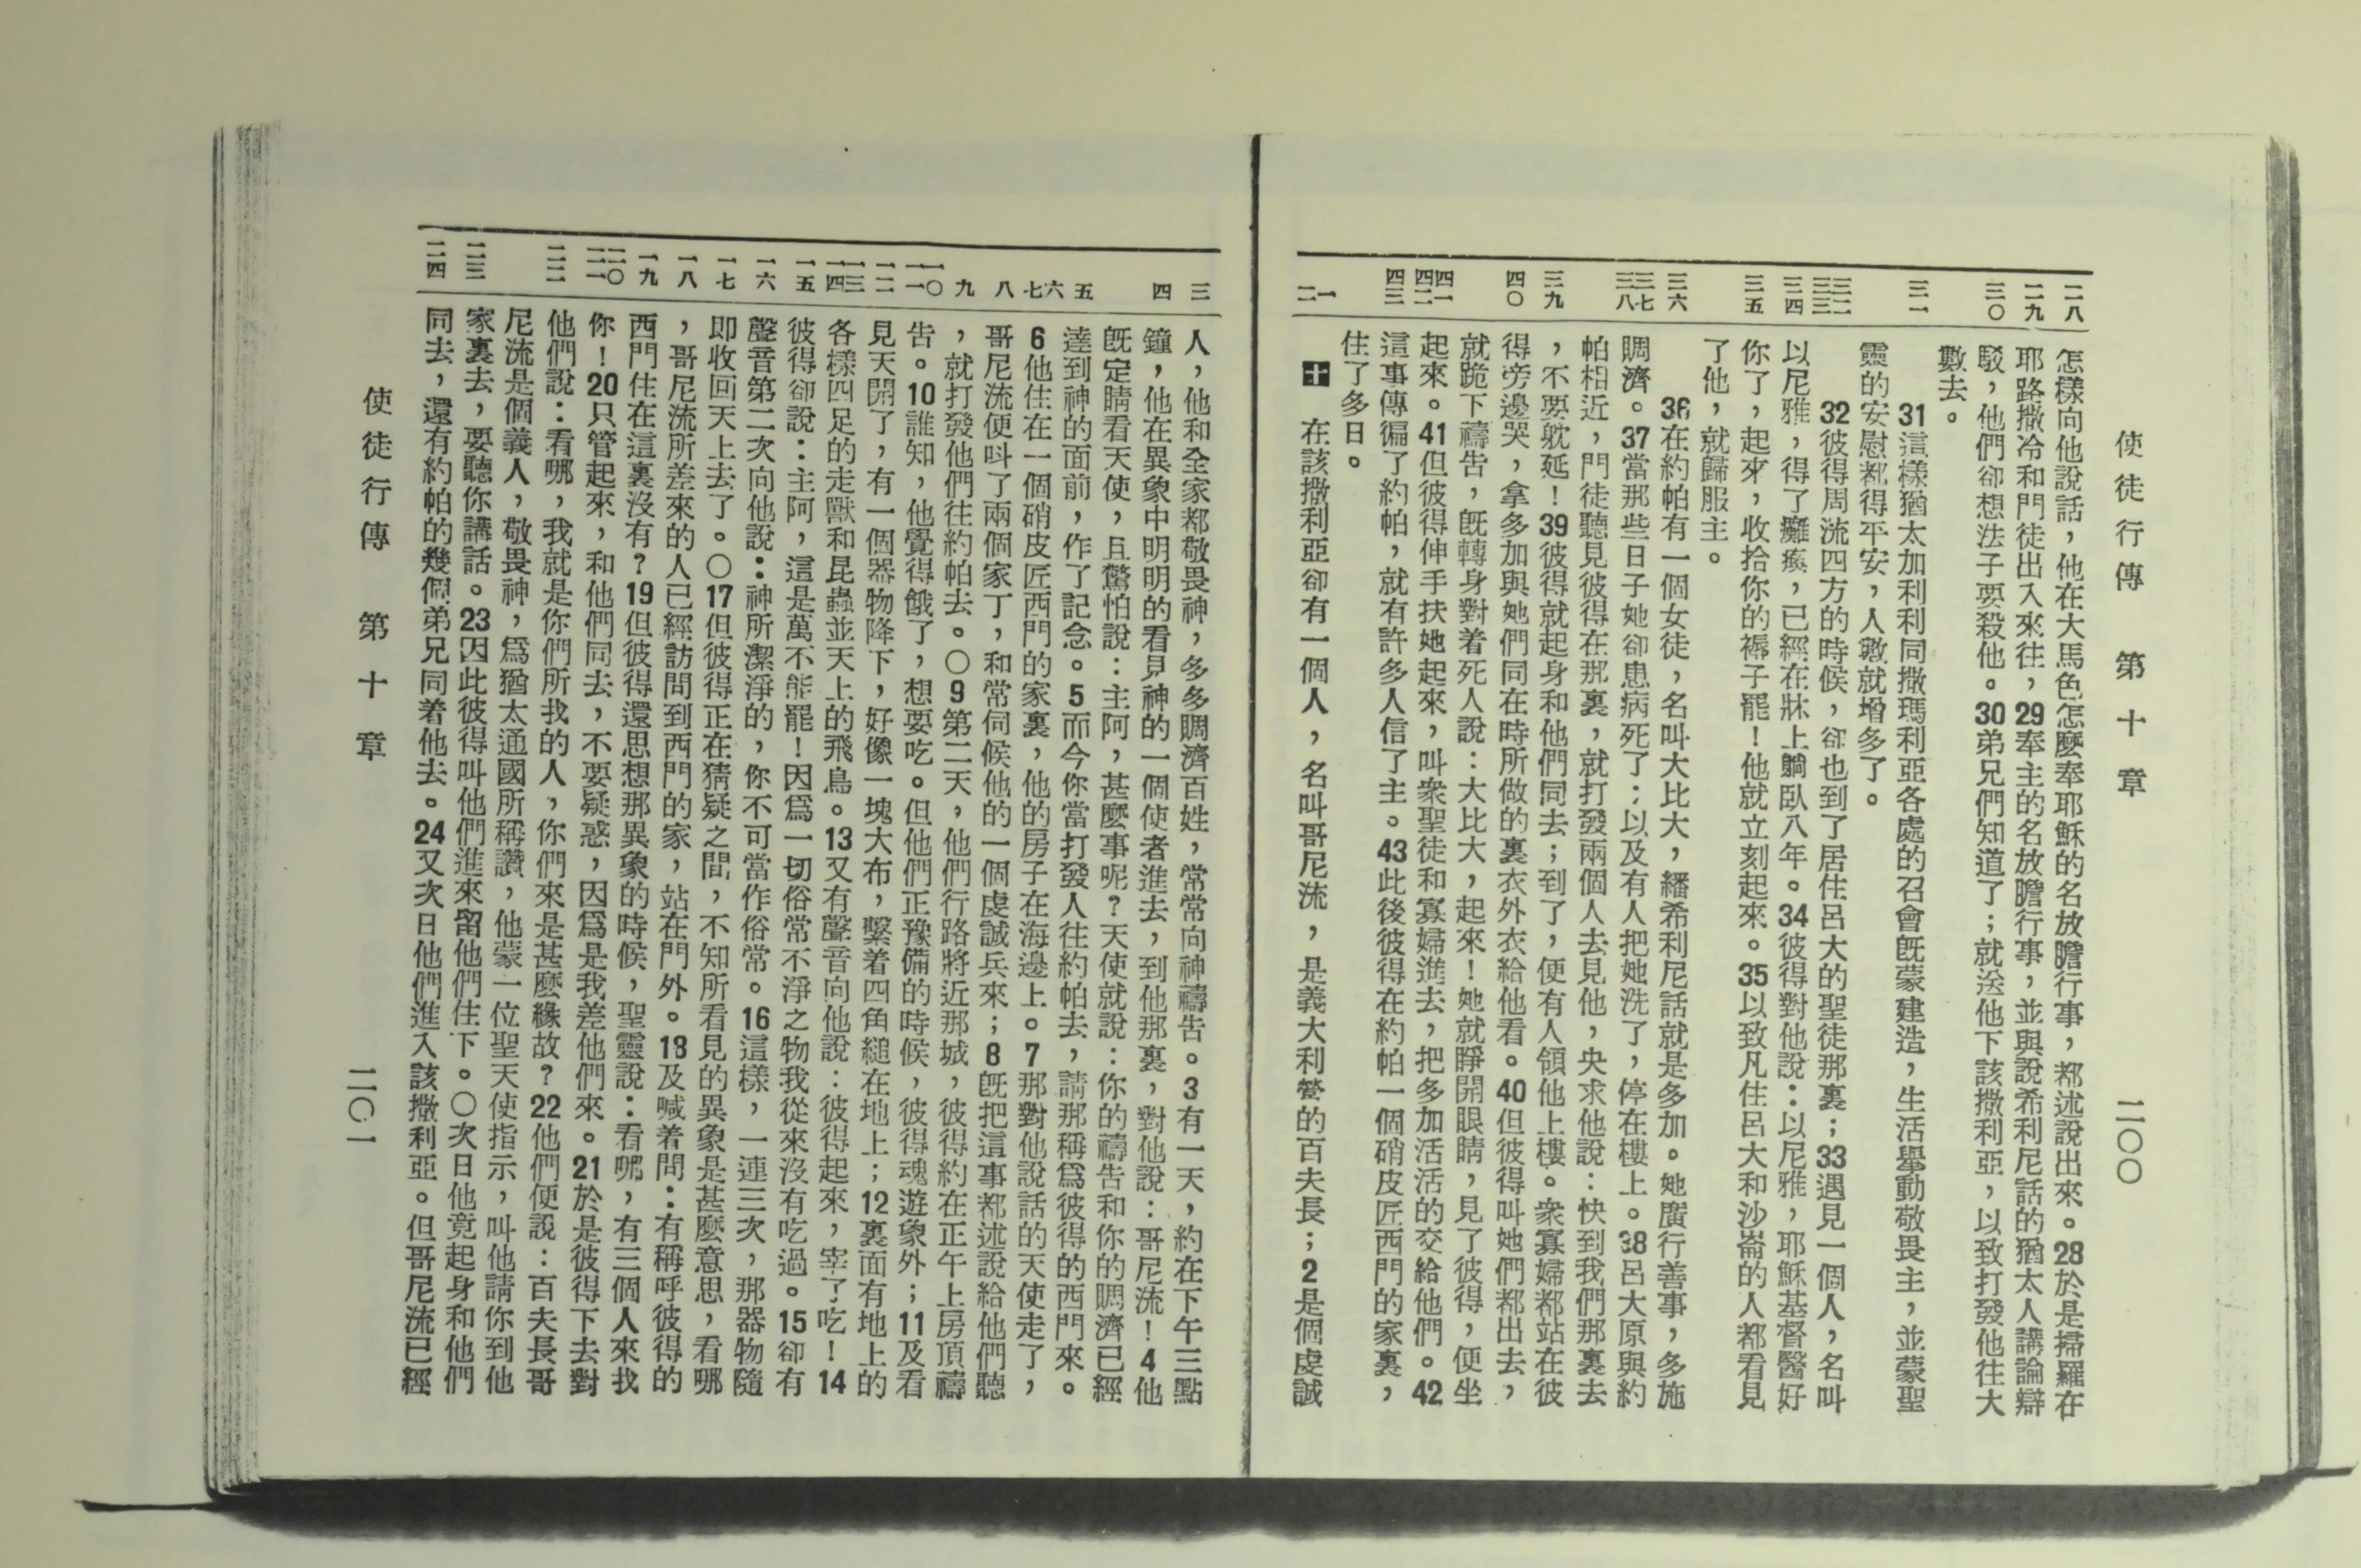 使徒行傳 第十章 二〇〇
二八 二九 三〇 三一 三二 三三 三四 三五 三六 三七 三八 三九 四〇 四一 四二 四三 一 二
怎樣向他說話，他在大馬色怎麼奉耶穌的名放膽行事，都述說出來。28於是掃羅在
耶路撒冷和門徒出入來往，29奉主的名放膽行事，並與說希利尼話的猶太人講論辯
駁，他們卻想法子要殺他。30弟兄們知道了；就送他下該撒利亞，以致打發他往大
數去。
31這樣猶太加利利同撒瑪利亞各處的召會既蒙建造，生活舉動敬畏主，並蒙聖
靈的安慰都得平安，人數就增多了。
32彼得周流四方的時候，卻也到了居住呂大的聖徒那裏；33遇見一個人，名叫
以尼雅，得了癱瘓，已經在牀上躺臥八年。34彼得對他說：以尼雅，耶穌基督醫好
你了，起來，收拾你的褥子罷！他就立刻起來。35以致凡住呂大和沙崙的人都看見
了他，就歸服主。
36在約帕有一個女徒，名叫大比大，繙希利尼話就是多加。她廣行善事，多施
賙濟。37當那些日子她卻患病死了；以及有人把她洗了，停在樓上。38呂大原與約
帕相近，門徒聽見彼得在那裏，就打發兩個人去見他，央求他說：快到我們那裏去
，不要躭延！39彼得就起身和他們同去；到了，便有人領他上樓。衆寡婦都站在彼
得旁邊哭，拿多加與她們同在時所做的裏衣外衣給他看。40但彼得叫她們都出去，
就跪下禱告，既轉身對着死人說：大比大，起來！她就睜開眼睛，見了彼得，便坐
起來。41但彼得伸手扶她起來，叫衆聖徒和寡婦進去，把多加活活的交給他們。42
這事傳徧了約帕，就有許多人信了主。43此後彼得在約帕一個硝皮匠西門的家裏，
住了多日。
十 在該撒利亞卻有一個人，名叫哥尼流，是義大利營的百夫長；2是個虔誠
三 四 五 六 七 八 九 一〇 一一 一二 一三 一四 一五 一六 一七 一八 一九 二〇 二一 二二 二三 二四
人，他和全家都敬畏神，多多賙濟百姓，常常向神禱告。3有一天，約在下午三點
鐘，他在異象中明明的看見神的一個使者進去，到他那裏，對他說：哥尼流！4他
旣定睛看天使，且驚怕說：主阿，甚麼事呢？天使就說：你的禱告和你的賙濟已經
達到神的面前，作了記念。5而今你當打發人往約帕去，請那稱爲彼得的西門來。
6他住在一個硝皮匠西門的家裏，他的房子在海邊上。7那對他說話的天使走了，
哥尼流便呌了兩個家丁，和常伺候他的一個虔誠兵來；8旣把這事都述說給他們聽
，就打發他們往約帕去。〇9第二天，他們行路將近那城，彼得約在正午上房頂禱
告。10誰知，他覺得餓了，想要吃。但他們正豫備的時候，彼得魂遊象外；11及看
見天開了，有一個器物降下，好像一塊大布，繫着四角縋在地上；12裏面有地上的
各樣四足的走獸和昆蟲並天上的飛鳥。13又有聲音向他說：彼得起來，宰了吃！14
彼得卻說：主阿，這是萬不能罷！因爲一切俗常不淨之物我從來沒有吃過。15卻有
聲音第二次向他說：神所潔淨的，你不可當作俗常。16這樣，一連三次，那器物隨
即收回天上去了。〇17但彼得正在猜疑之間，不知所看見的異象是甚麼意思，看哪
，哥尼流所差來的人已經訪問到西門的家，站在門外。18及喊着問：有稱呼彼得的
西門住在這裏沒有？19但彼得還思想那異象的時候，聖靈說：看哪，有三個人來找
你！20只管起來，和他們同去，不要疑惑，因爲是我差他們來。21於是彼得下去對
他們說：看哪，我就是你們所找的人，你們來是甚麼緣故？22他們便說：百夫長哥
尼流是個義人，敬畏神，爲猶太通國所稱讚，他蒙一位聖天使指示，叫他請你到他
家裏去，要聽你講話。23因此彼得叫他們進來留他們住下。〇次日他竟起身和他們
同去，還有約帕的幾個弟兄同着他去。24又次日他們進入該撒利亞。但哥尼流已經
使徒行傳 第十章 二〇一